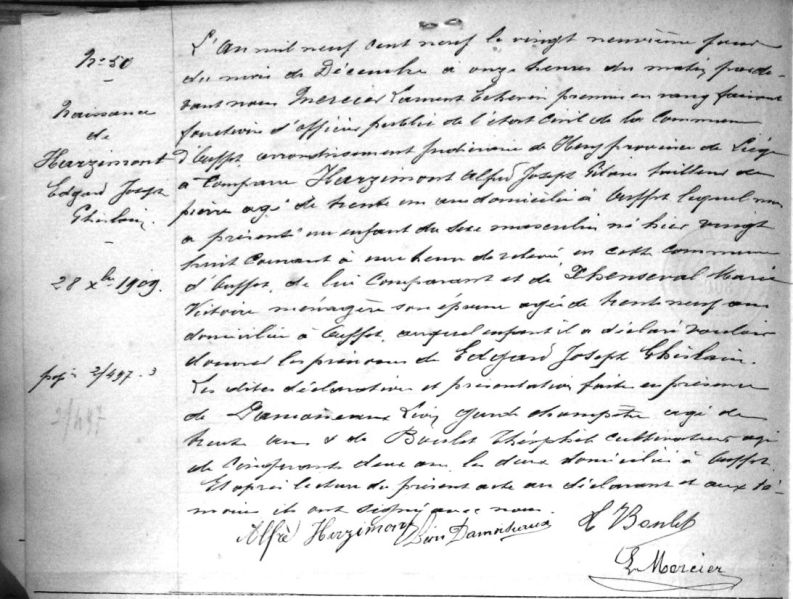 N° 50
Naissance
de
Herzimont
Edgard Joseph
Ghislain.
28 xbre 1909.
2/497-3
2/497
L'An mil neuf cent neuf le vingt neuvième jour
du mois de Décembre à onze heures du matin par de-
vant nous Mercier Laurent Echevin premier en rang faisant
fonctions d'officier public de l'état civil de la Commune
d'Ouffet, arrondissement Judiciaire de Huy province de Liège
a Comparu Herzimont Alfred Joseph tailleur de
pierre agé de trente un ans domicilié à Ouffet lequel nous
a présenté un enfant du sexe masculin né hier vingt
huit courant à une heure de relevée en cette commune
d'Ouffet, de lui Comparant et de Marie
Victoire ménagère son épouse agée de trente neuf ans
domiciliée à Ouffet, auquel enfant il a déclaré vouloir
donner les prénoms de Edgard Joseph Ghislain.
Les dites déclaration et présentation faite en présence
de Damoiseaux Léon garde champêtre agé de
trente ans & de Boulet Théophile cultivateur agé
de Cinquante deux ans, les deux domicilié à Ouffet.
Et après lecture du présent acte au déclarant et aux té-
moins ils ont signé avec nous.
Alfred Herzimont Léon Damoiseaux T Boulet
L Mercier